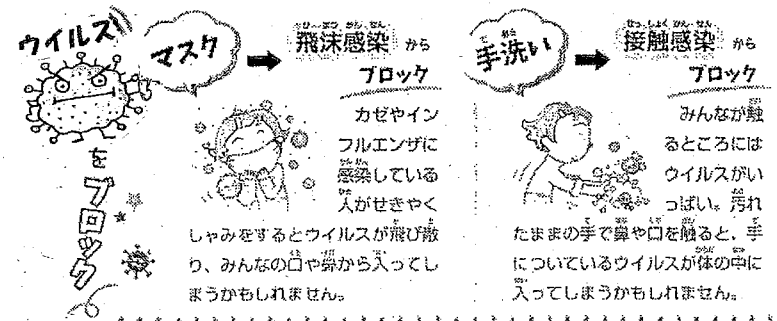 ウイルス
を
ブロック
マスク
➡
飛沫感染 から
ブロック
カゼやイン
フルエンザに
感染している
人がせきやく
しゃみをするとウイルスが飛び散
り、みんなの口や鼻から入ってし
まうかもしれません。
手洗い
➡
接触感染 から
ブロック
みんなが触
るところには
ウイルスがい
っぱい。汚れ
たままの手で鼻や口を触ると、手
についているウイルスが体の中に
入ってしまうかもしれません。